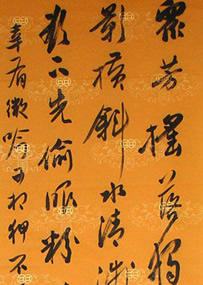 眾芳搖落獨
影橫斜水清淺
欲下先偷眼粉
幸有微吟可相狎不